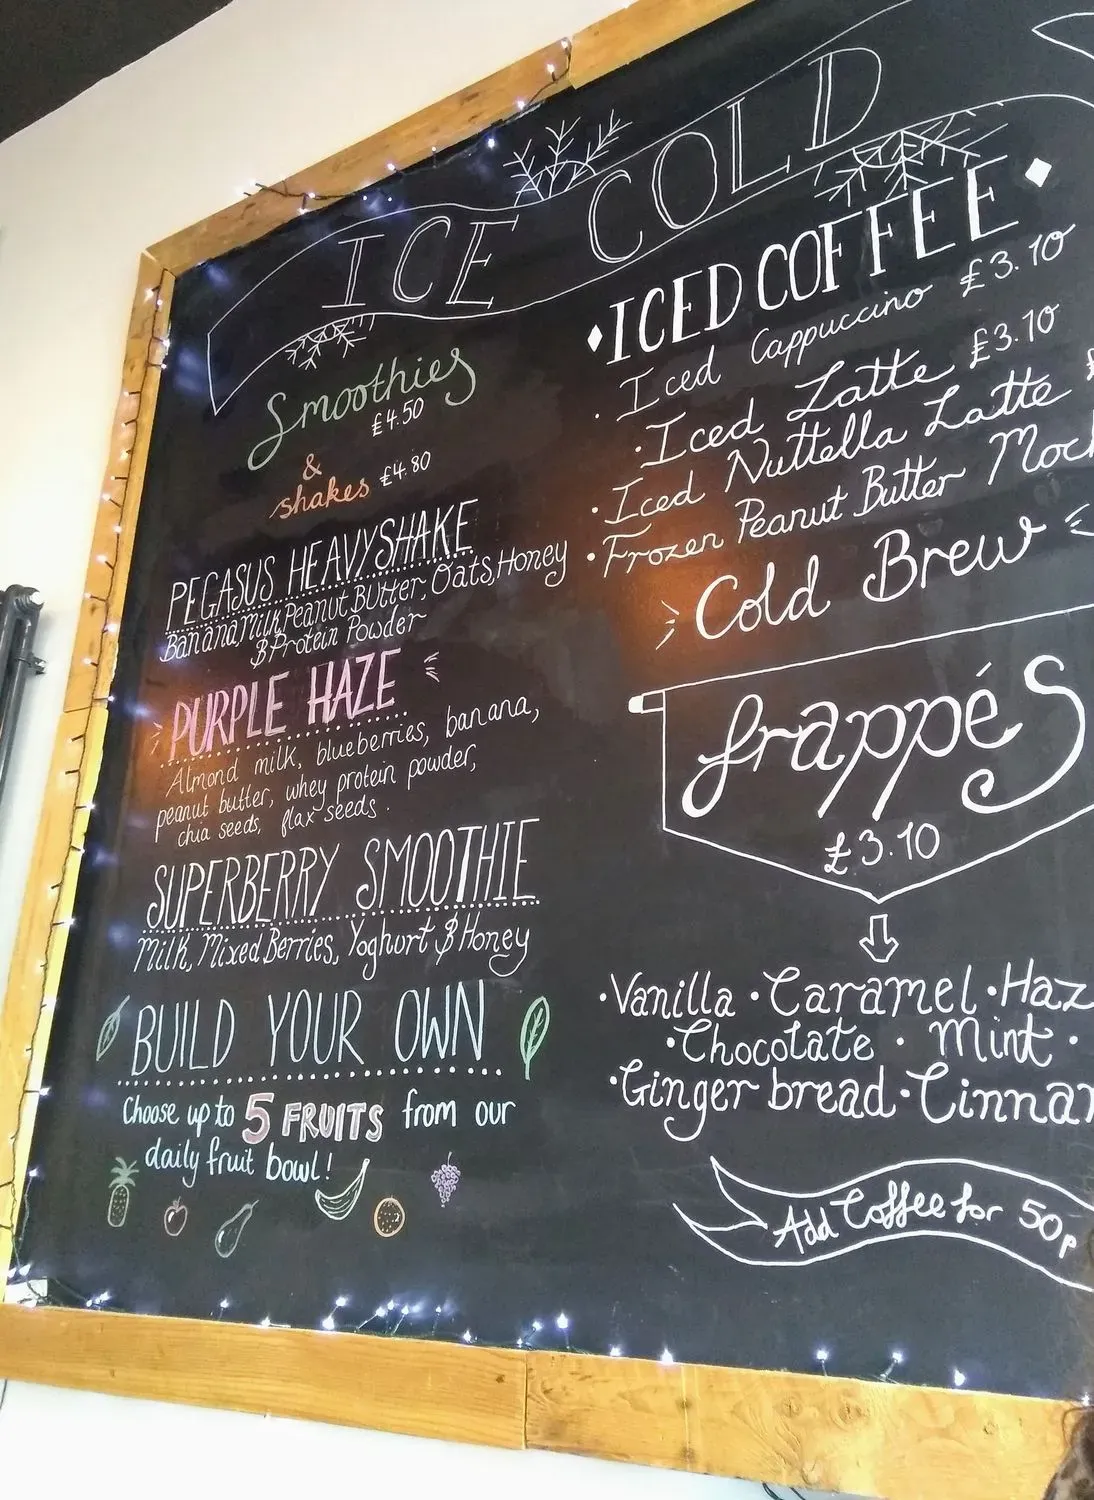 ICE COLD
Smoothies
£4.50
&
shakes £4.80
PEGASUS HEAVYSHAKE
Banana, Milk, Peanut Butter, Oats, Honey
& Protein Powder
PURPLE HAZE
Almond milk, blueberries, banana,
peanut butter, whey protein powder,
chia seeds, flax seeds.
SUPERBERRY SMOOTHIE
Milk, Mixed Berries, Yoghurt & Honey
BUILD YOUR OWN
Choose up to 5 FRUITS from our
daily fruit bowl!
ICED COFFEE
· Iced Cappuccino £3.10
· Iced Latte £3.10
· Iced Nuttella Latte
· Frozen Peanut Butter Moc
Cold Brew
frappés
£3.10
· Vanilla · Caramel · Haz
· Chocolate · Mint ·
· Gingerbread · Cinna
Add Coffee for 50p